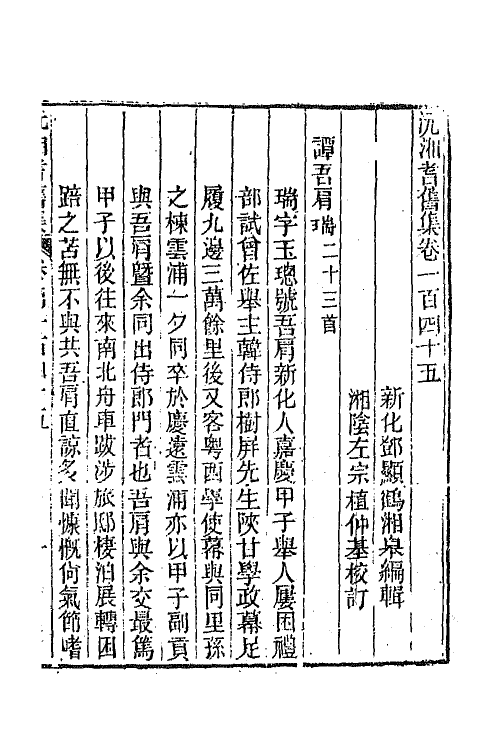 沅湘耆舊集卷一百四十五
新化鄧顯鶴湘皋編輯
湘陰左宗植仲基校訂
譚吾肩瑞二十三首
瑞字玉璁號吾肩新化人嘉慶甲子舉人屢困禮
部試曾佐舉主韓侍郎樹屏先生陝甘學政幕足
履九邊三萬餘里後又客粵西學使幕與同里孫
之棟雲浦一夕同卒於慶遠雲浦亦以甲子副貢
與吾肩暨余同出侍郎門者也吾肩與余交最篤
甲子以後往來南北舟車跋涉旅邸棲泊展轉困
踣之苦無不與共吾肩直諒多聞慷慨尙氣節嗜